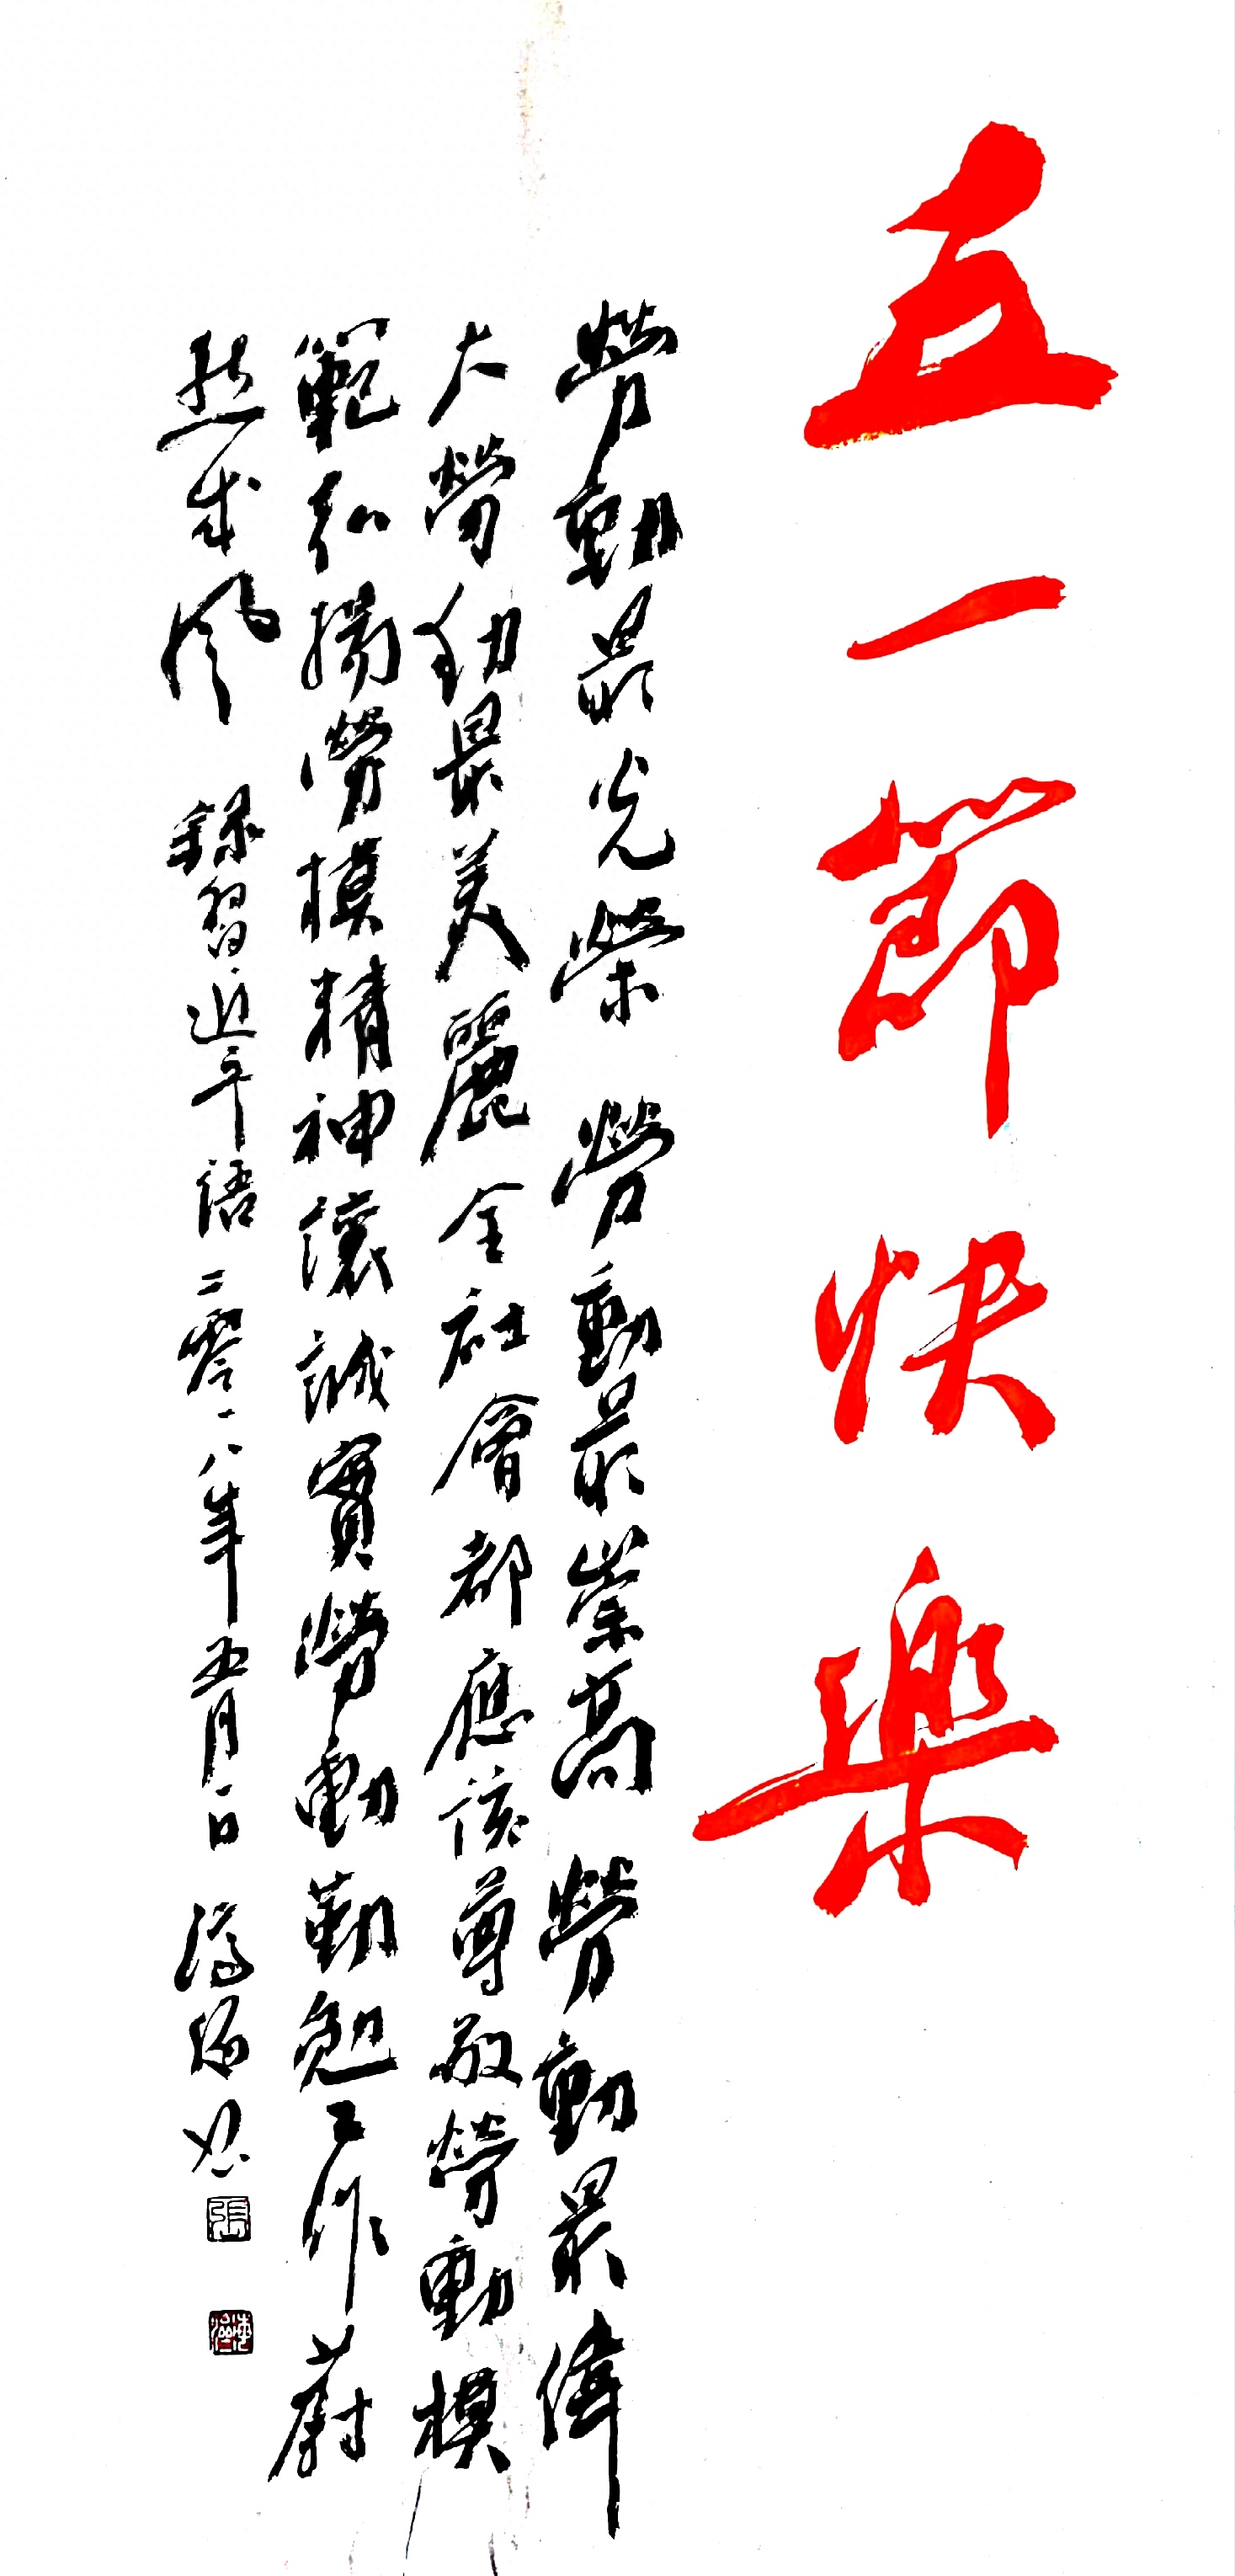 五一節快樂
勞動最光榮 勞動最崇高 勞動最偉
大勞動最美麗全社會都應該尊敬勞動模
範弘揚勞模精神讓誠實勞動勤勉工作蔚
然成風 錄習近平語二零一八年五月一日
張